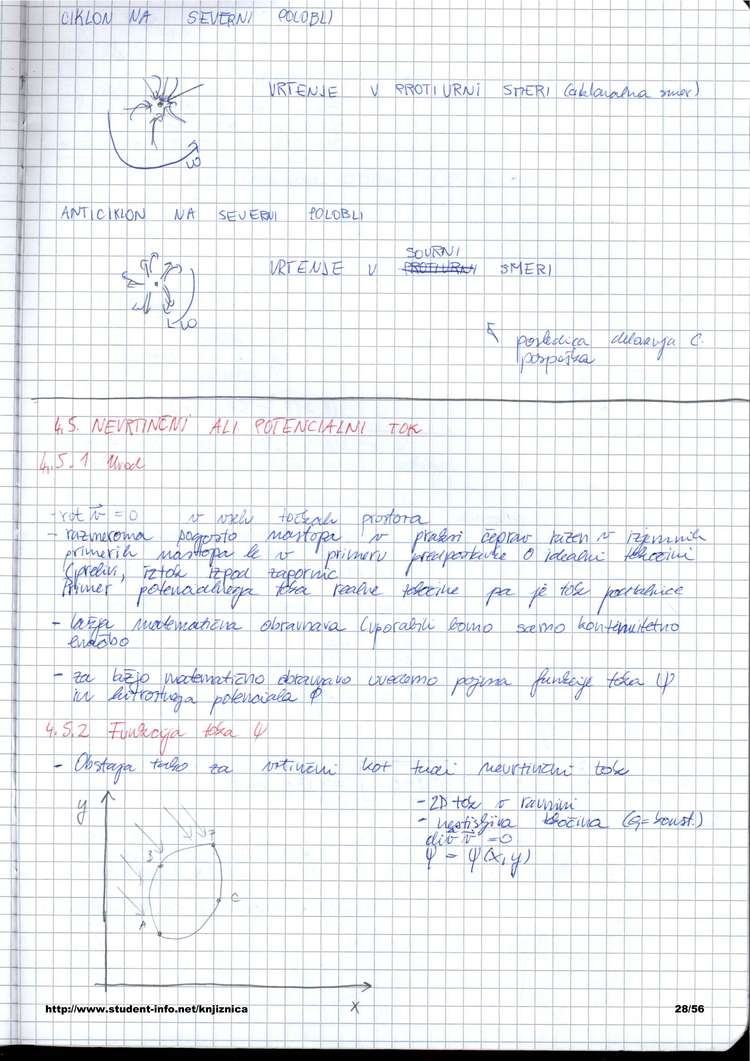 CIKLON NA SEVERNI POLOBLI
VRTENJE V PROTIURNI SMERI (ciklonalna smer)
ω
ANTICIKLON NA SEVERNI POLOBLI
SOURNI
VRTENJE V PROTIURNI SMERI
ω
posledica delovanja C.
pospeška
4.5. NEVRTINČNI ALI POTENCIALNI TOK
4.5.1 Uvod
- rot v⃗ = 0 v vseh točkah prostora
- razmeroma pogosto nastopa v praksi čeprav razen v izjemnih
primerih nastopa le v primeru predpostavke o idealni tekočini
(prelivi, iztok izpod zapornic
Primer potencialnega toka realne tekočine pa je tok podtalnice
- lažja matematična obravnava (uporabili bomo samo kontinuitetno
enačbo
- za lažjo matematično obravnavo uvedemo pojma funkcije toka ψ
in hitrostnega potenciala Φ
4.5.2 Funkcija toka ψ
- Obstaja tako za vrtinčni kot tudi nevrtinčni tok
y
- 2D tok v ravnini
- nestisljiva tekočina (ρ=konst.)
div v⃗ = 0
ψ = ψ(x,y)
B
C
A
x
http://www.student-info.net/knjiznica
28/56